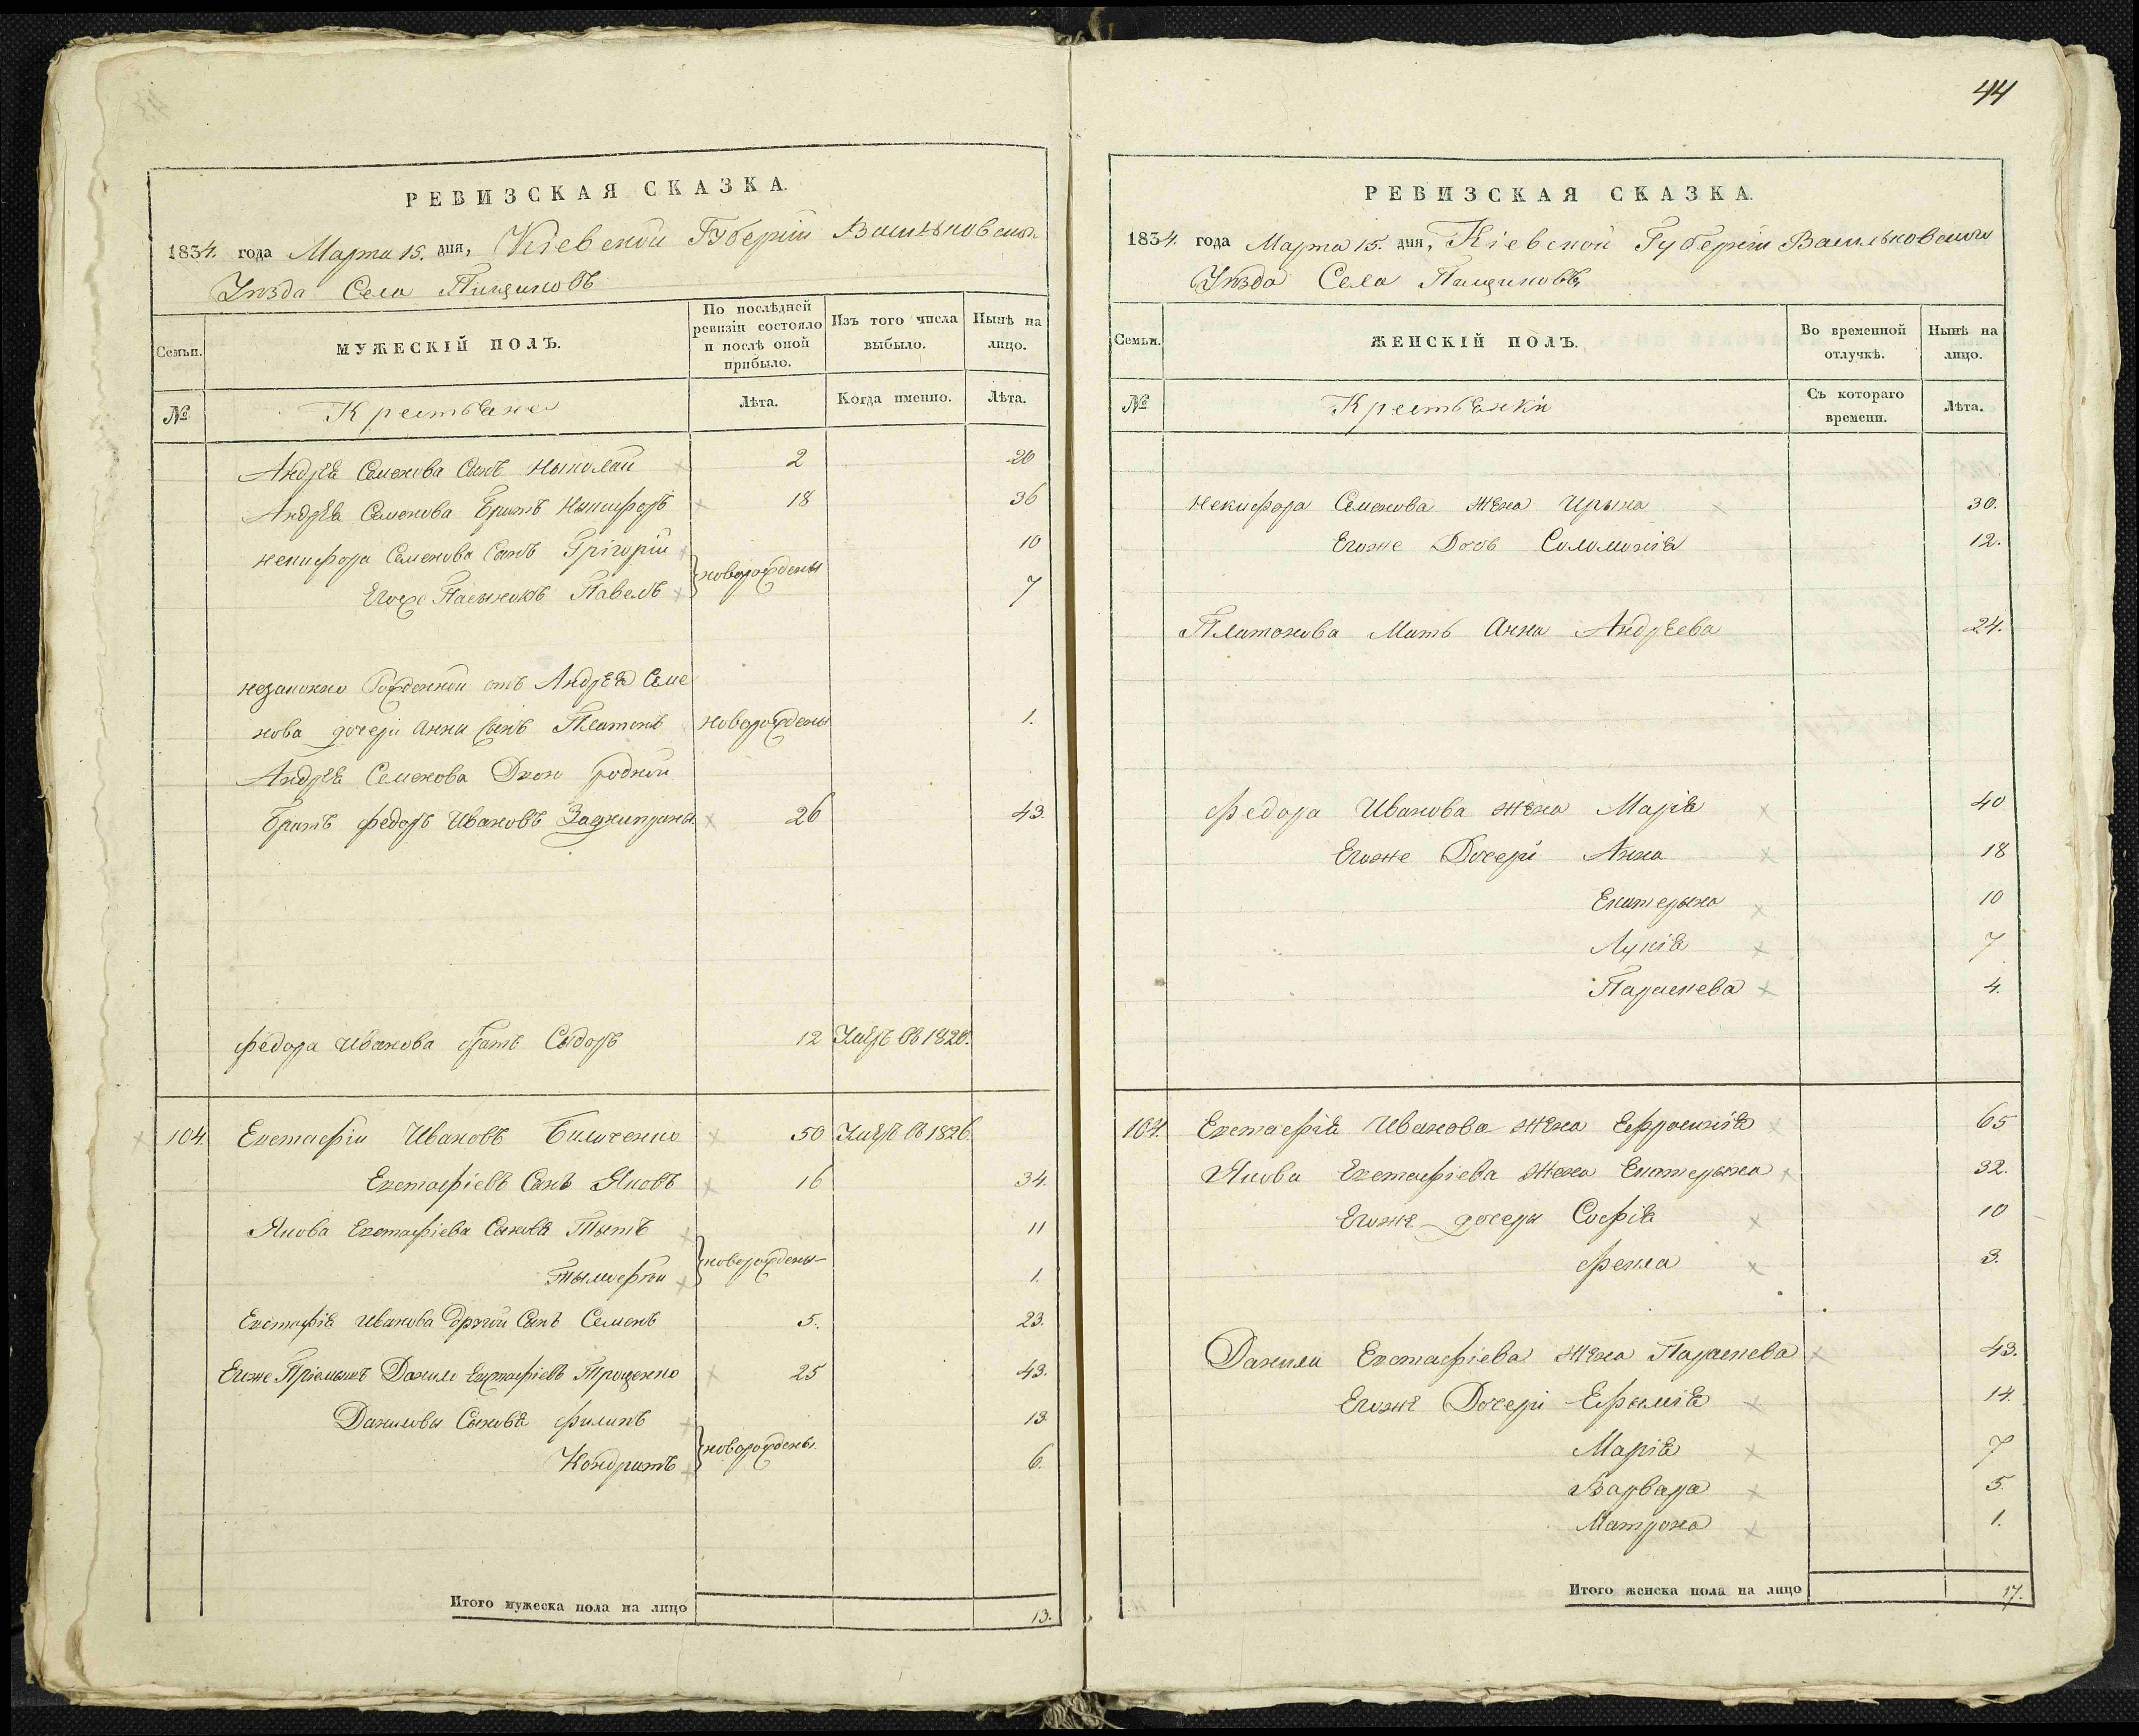 РЕВИЗСКАЯ СКАЗКА.
1834. года Марта 15. дня, Кіевской Губерніи Васильковскаго
Уѣзда Села Пищиковъ
Семьи. МУЖЕСКІЙ ПОЛЪ. По послѣдней ревизіи состояло и послѣ оной прибыло. Изъ того числа выбыло. Нынѣ на лицо.
№ Крестьяне Лѣта. Когда именно. Лѣта.
Андрѣя Семенова Сынъ Николай 2 20
Андрѣя Семенова Братъ Никифоръ 18 36
Некифора Семенова Сынъ Грігорій 10
Егоже Пасынокъ Павелъ новорождены 7
незаконно Рожденной отъ Андрѣя Семе
нова дочери Анны Сынъ Платонъ новорожденъ 1.
Андрѣя Семенова Двою родной
братъ Федоръ Ивановъ 26 43.
Федора Иванова братъ Сыдоръ 12 Умеръ въ 1820.
104. Евстафій Ивановъ Биличенко 50 Умеръ въ 1826.
Евстафіевъ Сынъ Яковъ 16 34.
Якова Евстафіева Сыновя Тытъ 11
Тымофѣй новорождены 1.
Евстафія Иванова другій Сынъ Семенъ 5. 23.
Егоже Пріемышъ Данило Евстафіевъ Троценко 25 43.
Данилови Сыновя Филипъ 13
Кондратъ новорождены 6.
Итого мужеска пола на лицо 13.
44
РЕВИЗСКАЯ СКАЗКА.
1834. года Марта 15. дня, Кіевской Губерніи Васильковскаго
Уѣзда Села Пищиковъ
Семьи. ЖЕНСКІЙ ПОЛЪ. Во временной отлучкѣ. Нынѣ на лицо.
№ Крестьянки Съ котораго времени. Лѣта.
Некифора Семенова Жена Ирына 30.
Егоже Дочь Соломонія 12.
Платонова Мать Анна Андрѣева 24.
Федора Иванова жена Марія 40
Егоже Дочери Анна 18
Екатерына 10
Лукія 7
Парасκева 4.
104. Евстафія Иванова жена Ефросинія 65
Якова Евстафіева Жена Екатерына 32.
Егоже дочеры Софія 10
Фекла 3.
Данила Евстафіева жена Параскева 43.
Егоже Дочери Ефимія 14.
Марія 7
Варвара 5.
Матрона 1.
Итого женска пола на лицо 17.